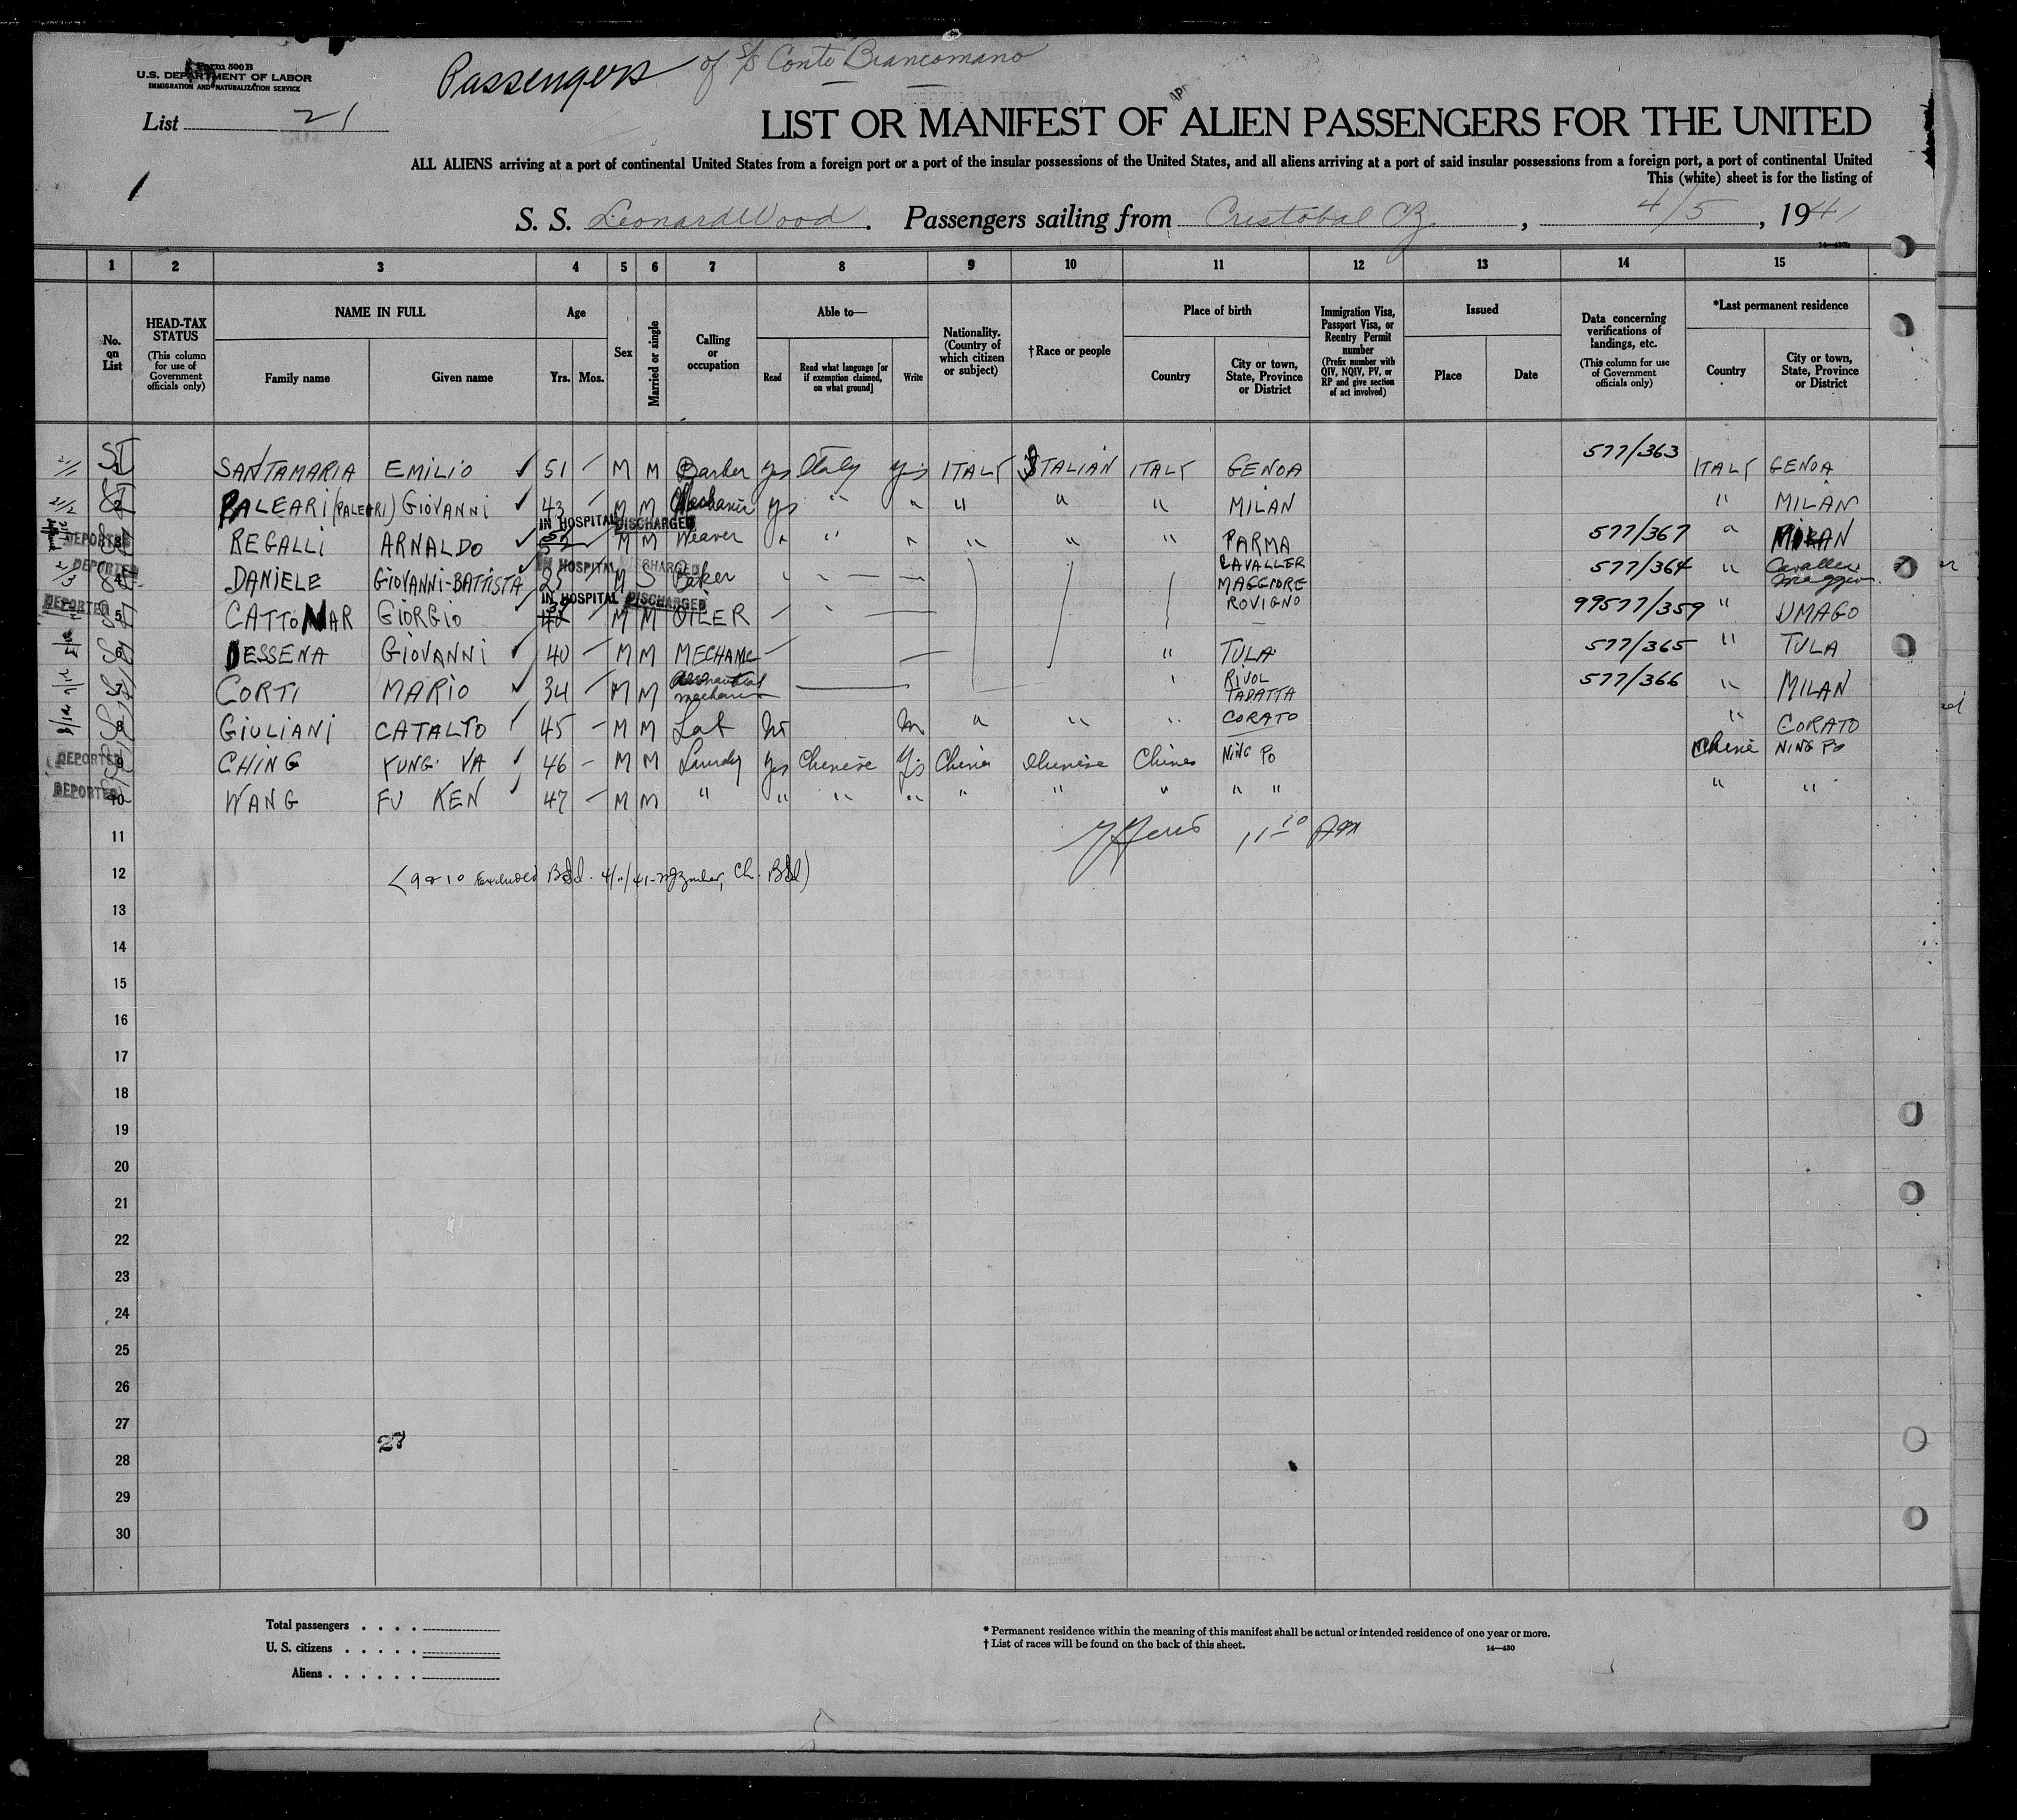 Passengers of S/S Conte Biancomano
Form 500 B
U.S. DEPARTMENT OF LABOR
IMMIGRATION AND NATURALIZATION SERVICE
List 21
LIST OR MANIFEST OF ALIEN PASSENGERS FOR THE UNITED
ALL ALIENS arriving at a port of continental United States from a foreign port or a port of the insular possessions of the United States, and all aliens arriving at a port of said insular possessions from a foreign port, a port of continental United
This (white) sheet is for the listing of
1
S. S. Leonard Wood. Passengers sailing from Cristobal CZ, 4/5, 1941
14—430b
1 2 3 4 5 6 7 8 9 10 11 12 13 14 15
No. on List
HEAD-TAX STATUS (This column for use of Government officials only)
NAME IN FULL
Family name Given name
Age
Yrs. Mos.
Sex
Married or single
Calling or occupation
Able to—
Read Read what language [or if exemption claimed, on what ground] Write
Nationality. (Country of which citizen or subject)
†Race or people
Place of birth
Country City or town, State, Province or District
Immigration Visa, Passport Visa, or Reentry Permit number (Prefix number with QIV, NQIV, PV, or RP and give section of act involved)
Issued
Place Date
Data concerning verifications of landings, etc. (This column for use of Government officials only)
*Last permanent residence
Country City or town, State, Province or District
SANTAMARIA EMILIO ✓ 51 – M M Barber yes Italy yes ITALY ITALIAN ITALY GENOA 577/363 ITALY GENOA
2 PALEARI (PALEARI) GIOVANNI ✓ 43 – M M Mechanic yes " " " " " MILAN " MILAN
IN HOSPITAL DISCHARGED
DEPORTED 3 REGALLI ARNALDO ✓ 52 M M Weaver " " " " " " PARMA 577/367 " MILAN
IN HOSPITAL DISCHARGED
DEPORTED 4 DANIELE GIOVANNI-BATTISTA 25 – M S Baker " " — — CAVALLER MAGGIORE 577/364 " Cavaller Maggiore
IN HOSPITAL DISCHARGED
DEPORTED 5 CATTONAR GIORGIO ✓ 39 – M M OILER – " — ROVIGNO 99577/359 " UMAGO
6 DESSENA GIOVANNI ✓ 40 – M M MECHANIC – — " TULA 577/365 " TULA
7 CORTI MARIO ✓ 34 – M M mechanic — " RIVOL TADATTA 577/366 " MILAN
8 GIULIANI CATALTO ✓ 45 – M M Lab no no " " " CORATO " CORATO
DEPORTED 9 CHING YUNG VA ✓ 46 – M M Laundry yes Chinese yes China Chinese China NING PO China NING PO
DEPORTED 10 WANG FU KEN ✓ 47 – M M " " " " " " " " " " "
11 11 10 AM
12 (9 & 10 Excluded BSI Ch. BSI)
13
14
15
16
17
18
19
20
21
22
23
24
25
26
27
27
28
29
30
Total passengers . . . .
U. S. citizens . . . . .
Aliens . . . . . .
* Permanent residence within the meaning of this manifest shall be actual or intended residence of one year or more.
† List of races will be found on the back of this sheet.
14—430